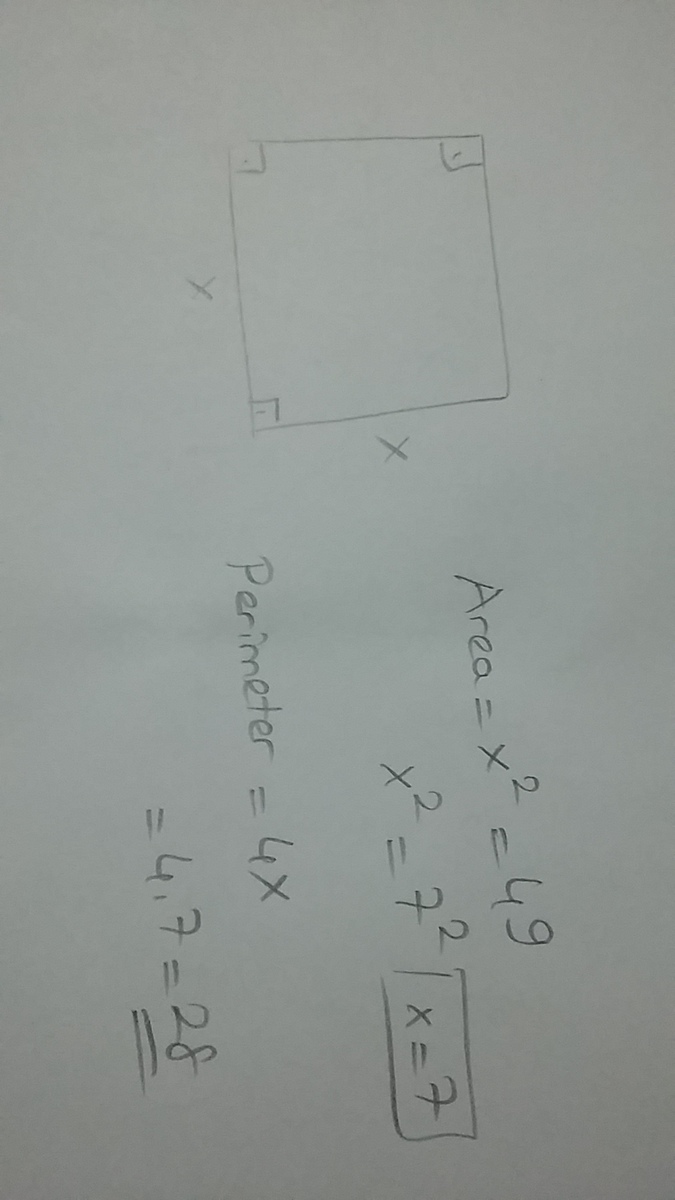 x
x
Area = x² = 49
x² = 7² / x = 7
Perimeter = 4x
= 4.7 = 28